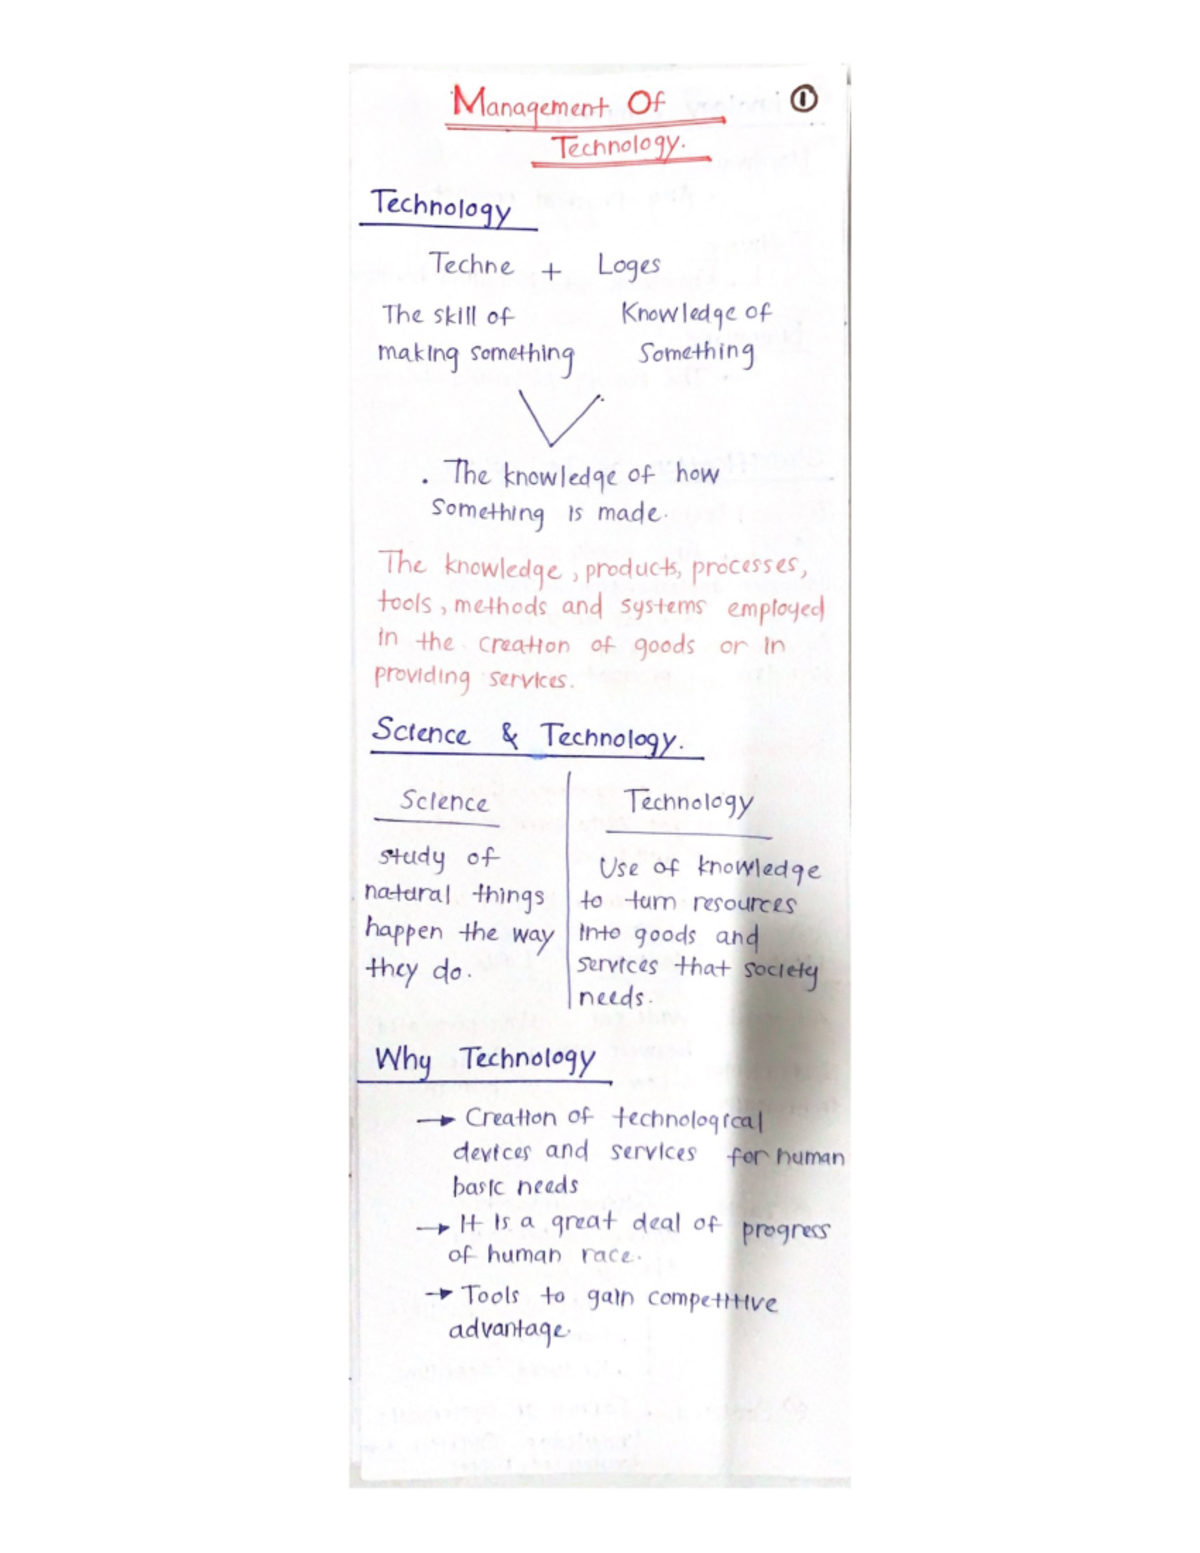 Management Of
①
Technology.
Technology
Techne + Loges
The skill of Knowledge of
making something Something
. The knowledge of how
Something is made.
The knowledge, products, processes,
tools, methods and systems employed
in the creation of goods or in
providing services.
Science & Technology.
Science Technology
study of Use of knowledge
natural things to turn resources
happen the way into goods and
they do. services that society
needs.
Why Technology
→ Creation of technological
devices and services for human
basic needs
→ It is a great deal of progress
of human race.
→ Tools to gain competitive
advantage.